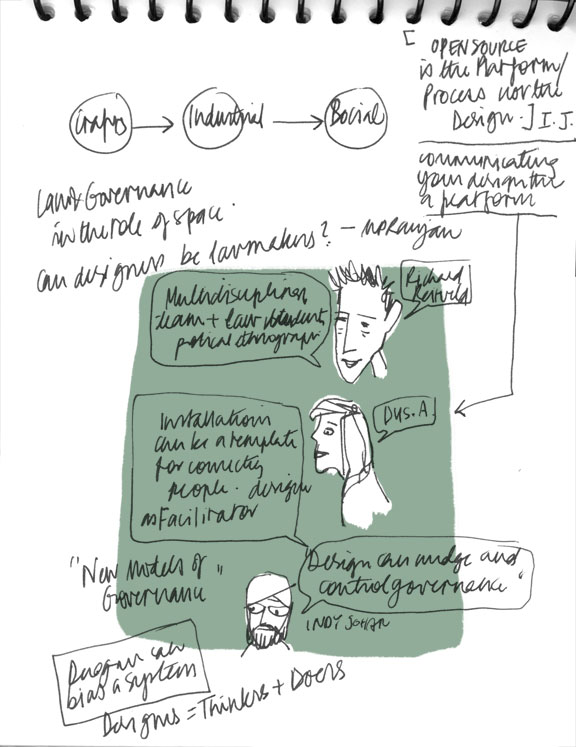 [ OPEN SOURCE
is the Platform/
Process not the
Design. ] I.J.
Crafts
Industrial
Social
communicating
your design thr
a platform
Law & Governance
in the role of space.
can designers be lawmakers? -
Multidisciplinary
team + law students
political ethnography
Richard
Installations
can be a template
for connecting
people. designer
as Facilitator
Dus. A.
"New Models of
Governance"
"Design can nudge and
control governance"
INDY JOHAR
Designer can
bias a system
Designers = Thinkers + Doers